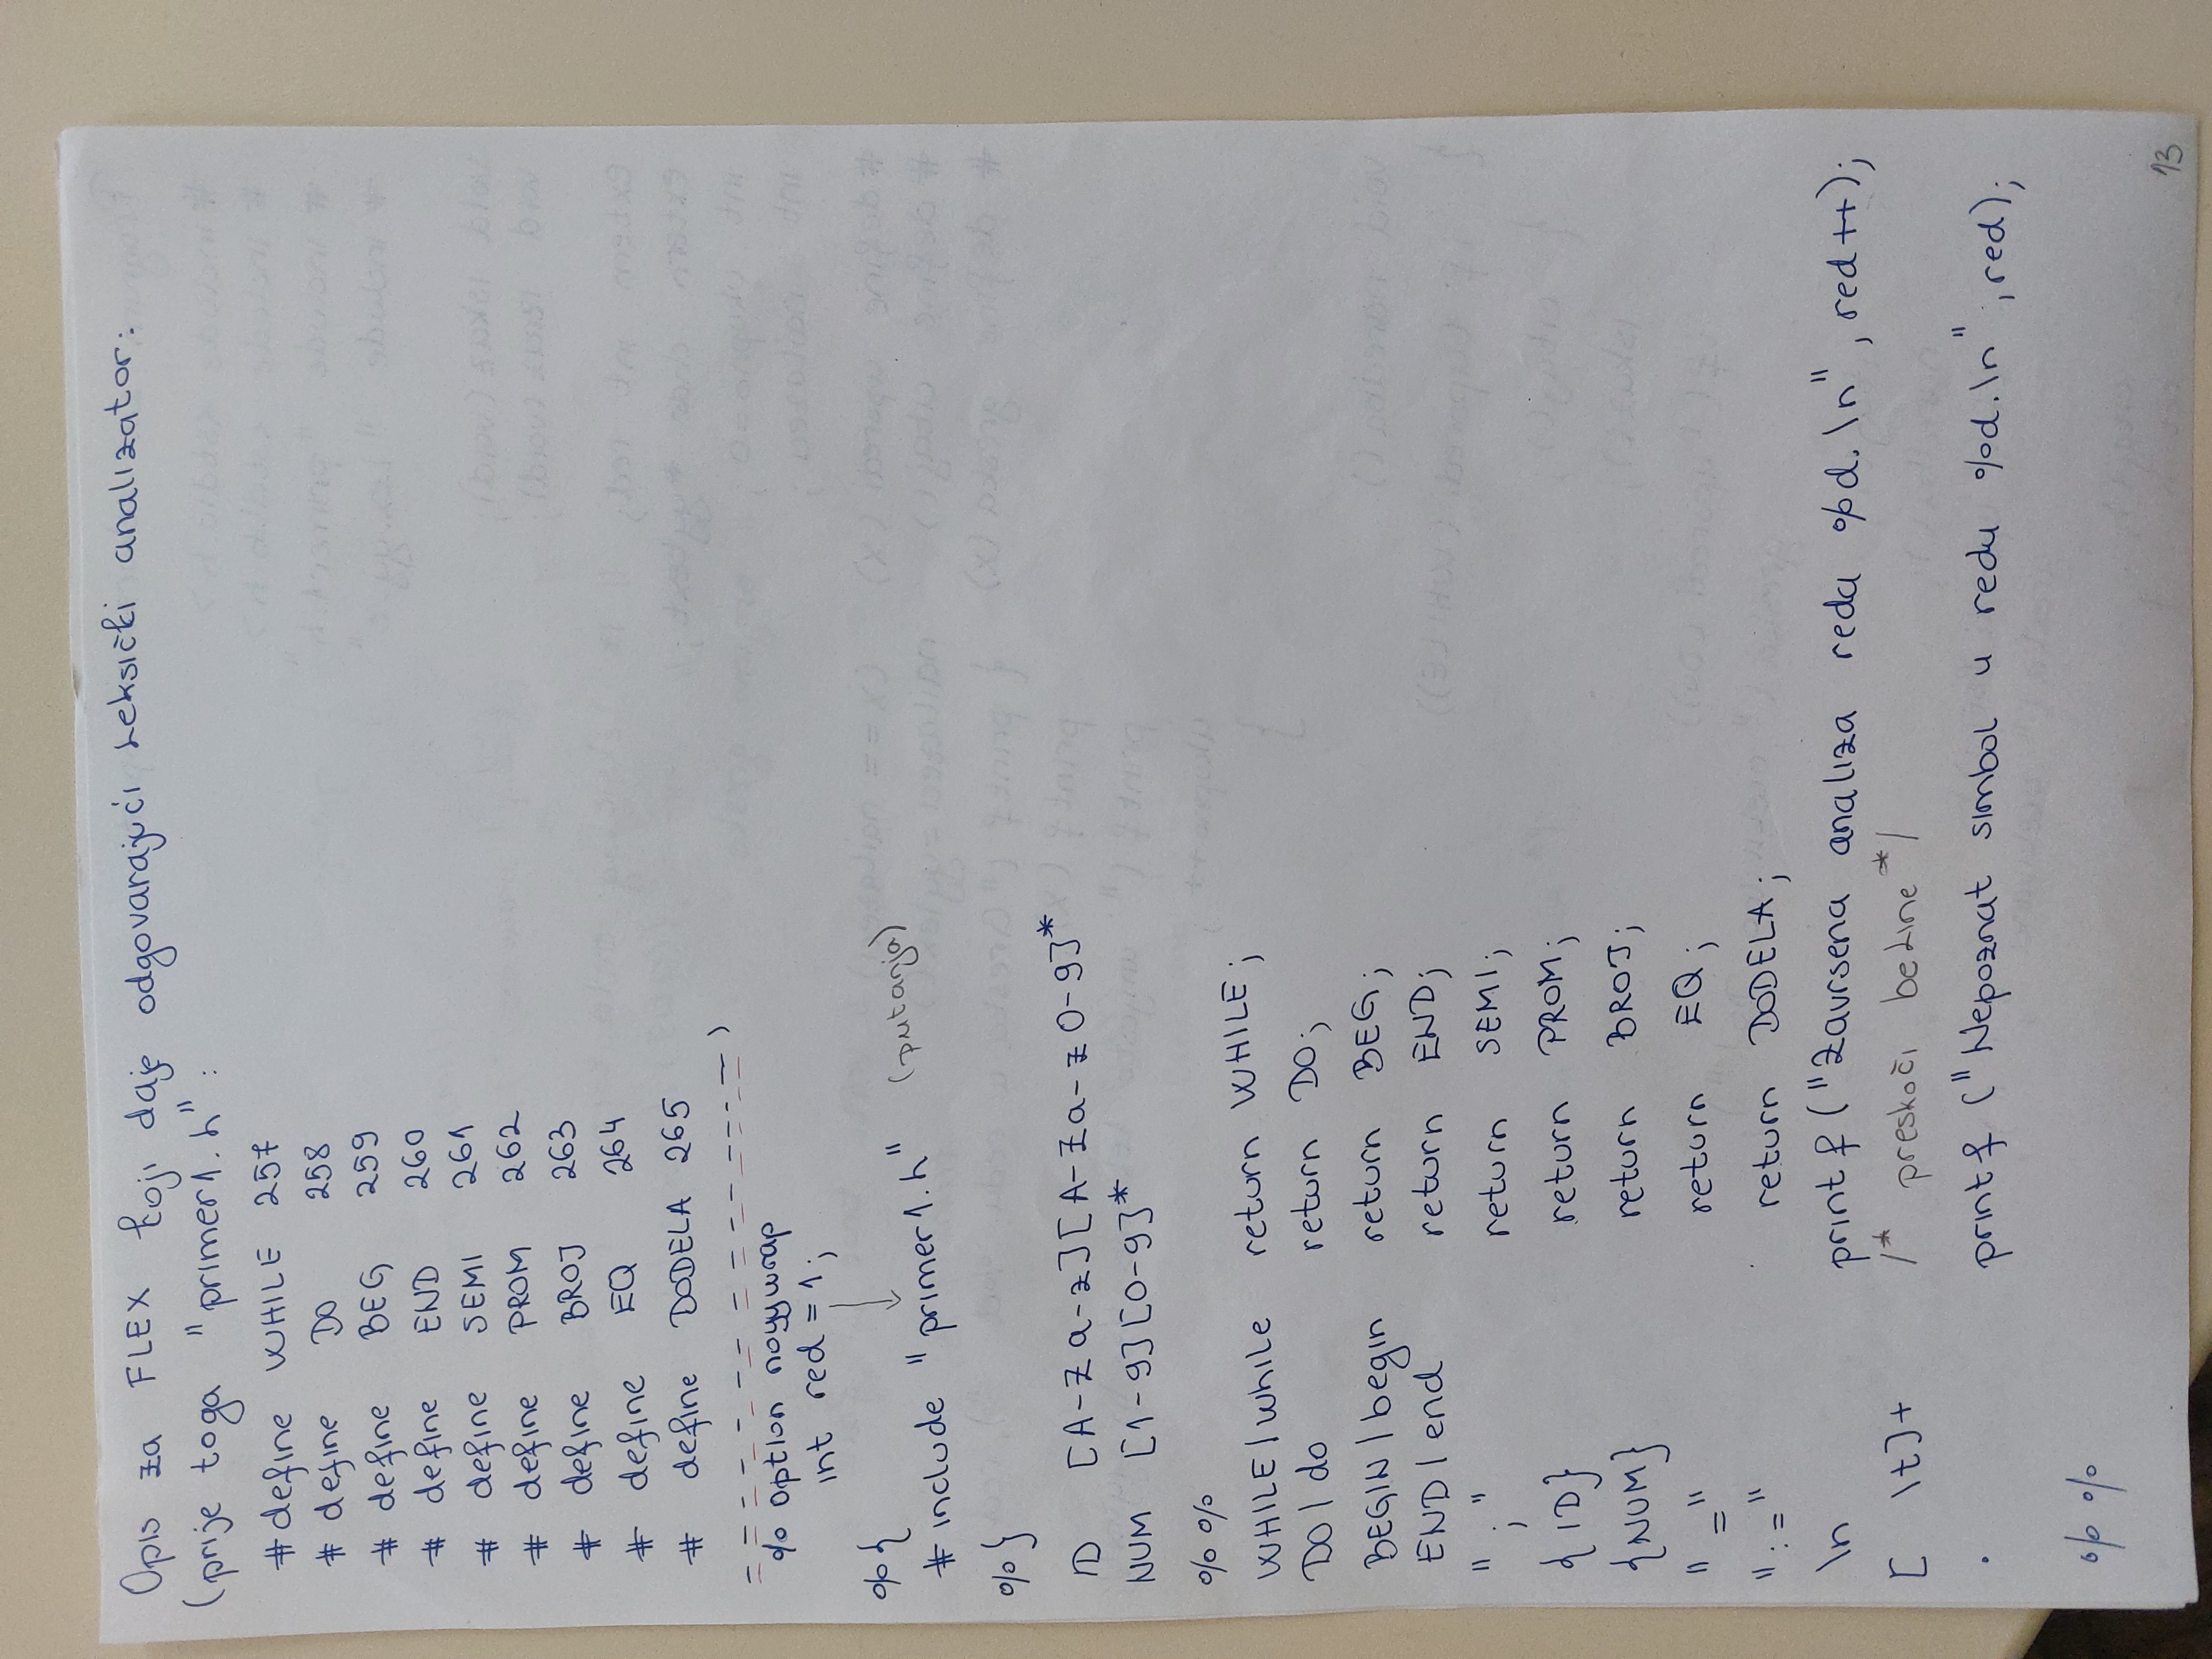 Opis za FLEX koji daje odgovarajući leksički analizator:
(prije toga "primer1.h":
#define WHILE 257
# define DO 258
# define BEG 259
# define END 260
# define SEMI 261
# define PROM 262
# define BROJ 263
# define EQ 264
# define DODELA 265
- - - - - - - - - - - - - )
% option noyywrap
int red = 1;
%{
# include "primer1.h" (putanja)
%}
ID [A-Za-z][A-Za-z0-9]*
NUM [1-9][0-9]*
%%
WHILE|while return WHILE;
DO|do return DO;
BEGIN|begin return BEG;
END|end return END;
";" return SEMI;
{ID} return PROM;
{NUM} return BROJ;
"=" return EQ;
":=" return DODELA;
\n printf("Zavrsena analiza reda %d.\n", red++);
[ \t]+ /* preskoči beline */
. printf("Nepoznat simbol u redu %d.\n", red);
%%
13